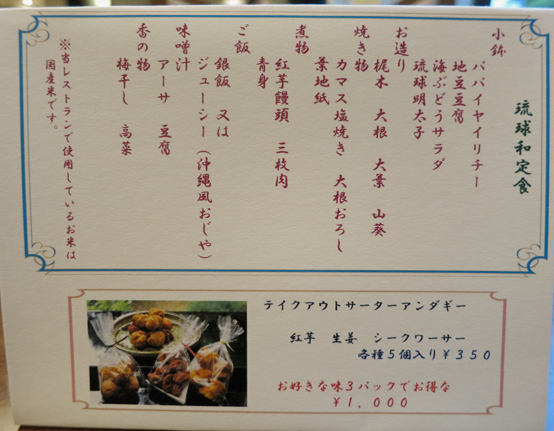 琉球和定食
小鉢
パパイヤイリチー
地豆豆腐
海ぶどうサラダ
琉球明太子
お造り
梶木 大根 大葉 山葵
焼き物
カマス塩焼き 大根おろし
葉地紙
煮物
紅芋饅頭 三枚肉
青身
ご飯
銀飯 又は
ジューシー（沖縄風おじや）
味噌汁
アーサ 豆腐
香の物
梅干し 高菜
※当レストランで使用しているお米は
国産米です。
テイクアウトサーターアンダギー
紅芋 生姜 シークワーサー
各種5個入り¥350
お好きな味3パックでお得な
¥1,000